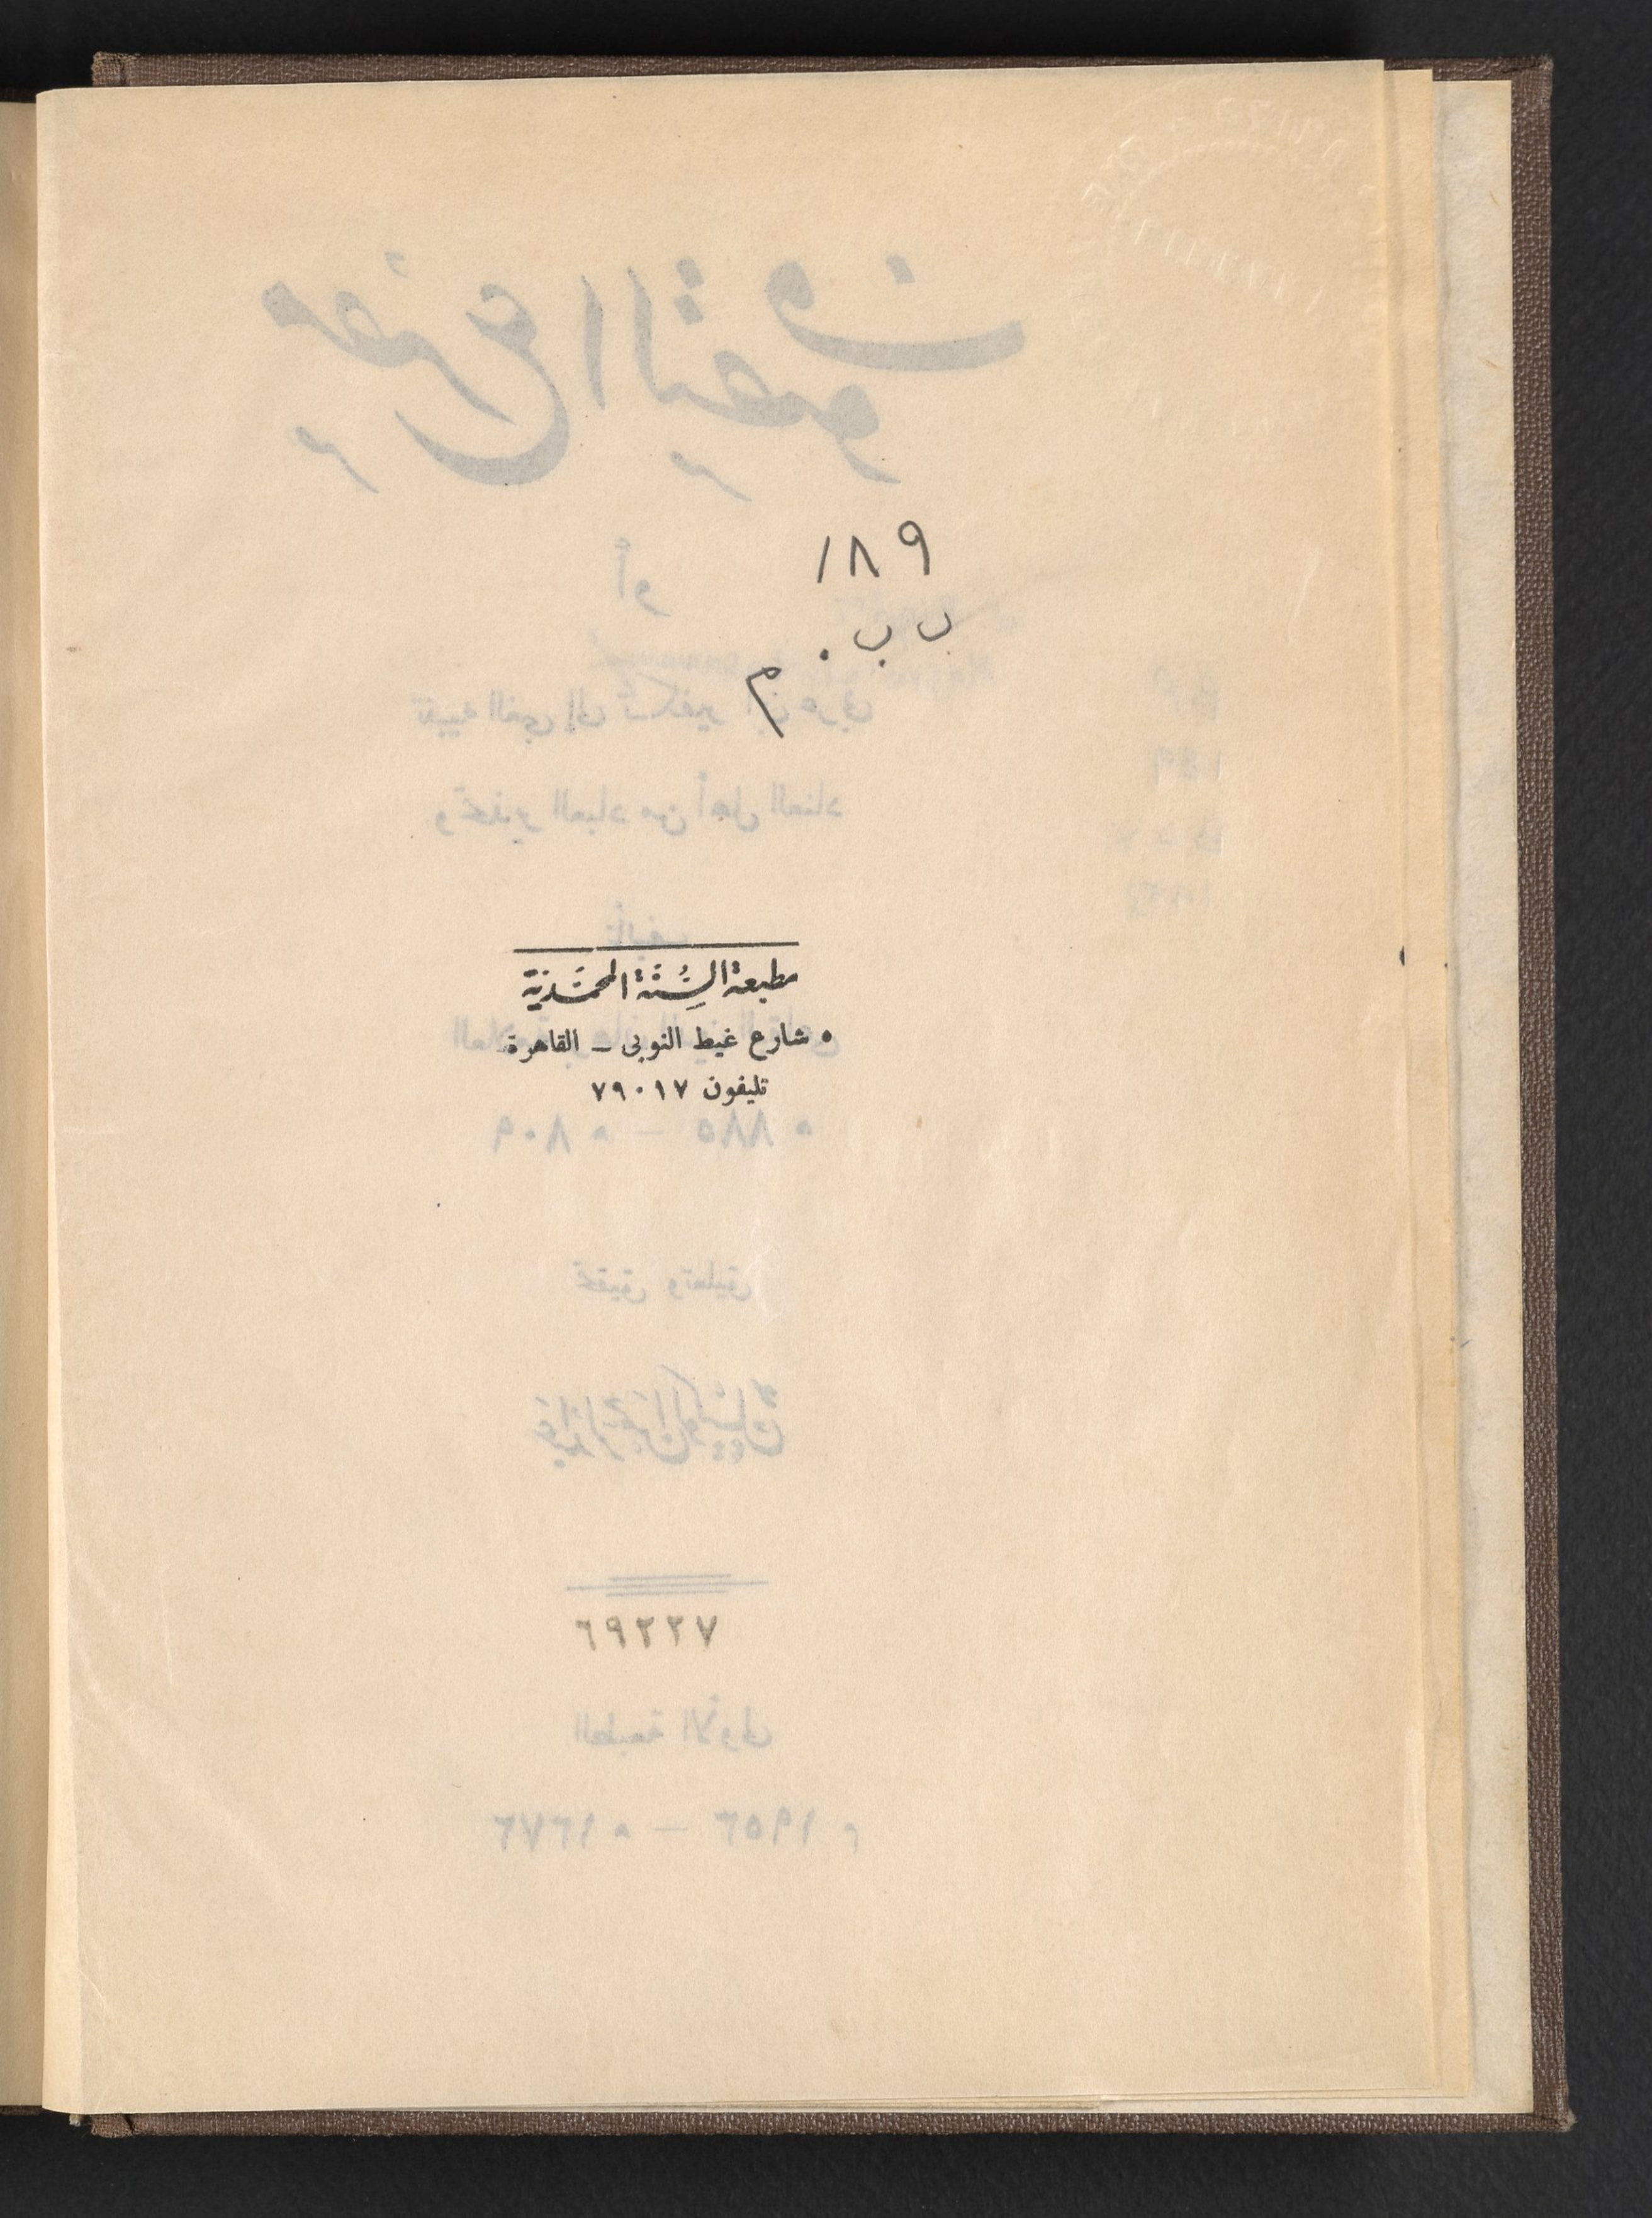 ١٨٩
ب ب .
م
مطبعة السُّنَّة المحمَّديَّة
٥ شارع غيط النوبى – القاهرة
تليفون ٧٩٠١٧